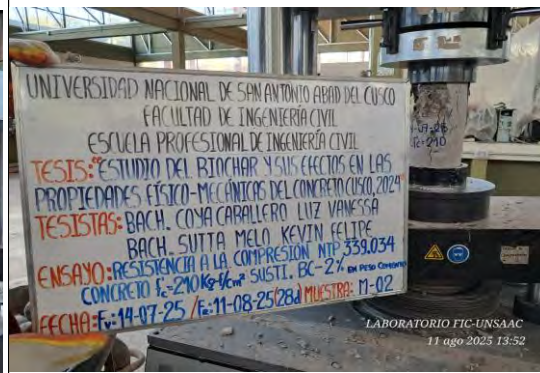 UNIVERSIDAD NACIONAL DE SAN ANTONIO ABAD DEL CUSCO
FACULTAD DE INGENIERÍA CIVIL
ESCUELA PROFESIONAL DE INGENIERÍA CIVIL
TESIS: "ESTUDIO DEL BIOCHAR Y SUS EFECTOS EN LAS
PROPIEDADES FÍSICO-MECÁNICAS DEL CONCRETO CUSCO, 2024"
TESISTAS: BACH. COYA CABALLERO LUZ VANESSA
BACH. SUTTA MELO KEVIN FELIPE
ENSAYO: RESISTENCIA A LA COMPRESIÓN NTP 339.034
CONCRETO f'c=210Kg-f/cm² SUSTI. BC-2% EN PESO CEMENTO
FECHA: Fv: 14-07-25 / FR: 11-08-25 (28d) MUESTRA: M-02
210
LABORATORIO FIC-UNSAAC
11 ago 2025 13:52